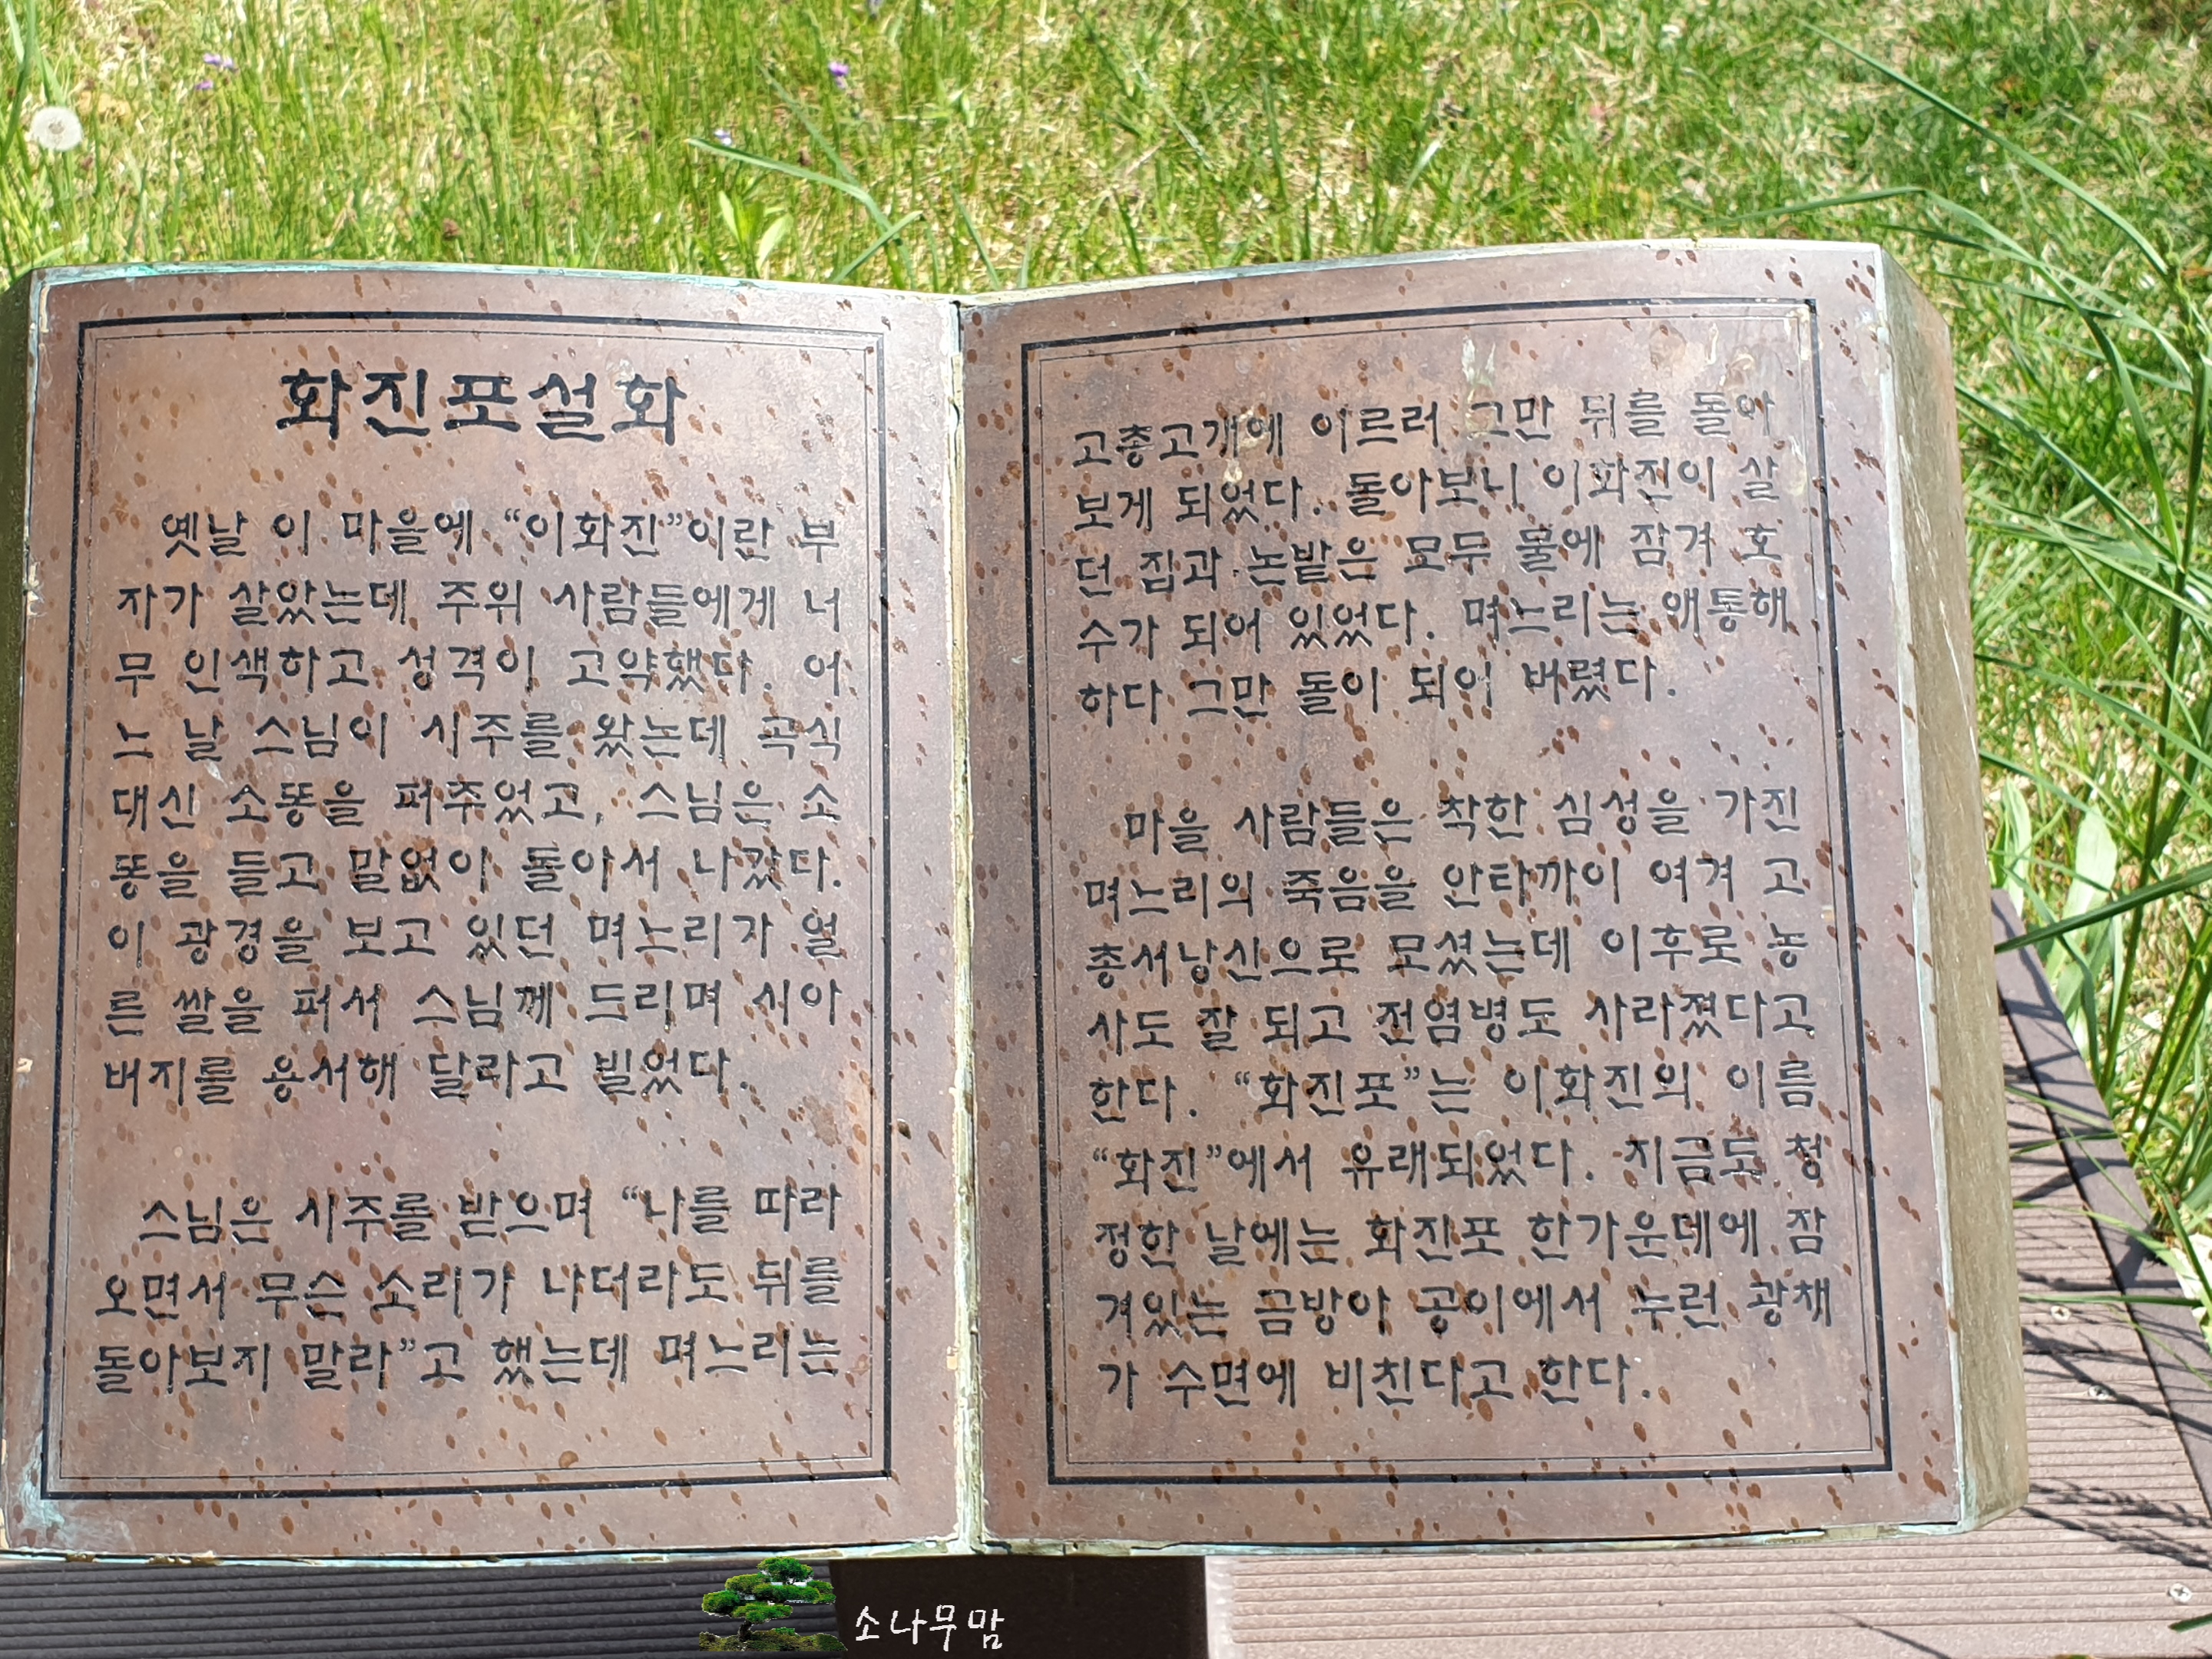 화진포설화
옛날 이 마을에 “이화진”이란 부
자가 살았는데 주위 사람들에게 너
무 인색하고 성격이 고약했다. 어
느 날 스님이 시주를 왔는데 곡식
대신 소똥을 퍼주었고, 스님은 소
똥을 들고 말없이 돌아서 나갔다.
이 광경을 보고 있던 며느리가 얼
른 쌀을 퍼서 스님께 드리며 시아
버지를 용서해 달라고 빌었다.
스님은 시주를 받으며 “나를 따라
오면서 무슨 소리가 나더라도 뒤를
돌아보지 말라”고 했는데 며느리는
고총고개에 이르러 그만 뒤를 돌아
보게 되었다. 돌아보니 이화진이 살
던 집과 논밭은 모두 물에 잠겨 호
수가 되어 있었다. 며느리는 애통해
하다 그만 돌이 되어 버렸다.
마을 사람들은 착한 심성을 가진
며느리의 죽음을 안타까이 여겨 고
총서낭신으로 모셨는데 이후로 농
사도 잘 되고 전염병도 사라졌다고
한다. “화진포”는 이화진의 이름
“화진”에서 유래되었다. 지금도 청
정한 날에는 화진포 한가운데에 잠
겨있는 금방아 공이에서 누런 광채
가 수면에 비친다고 한다.
소나무맘